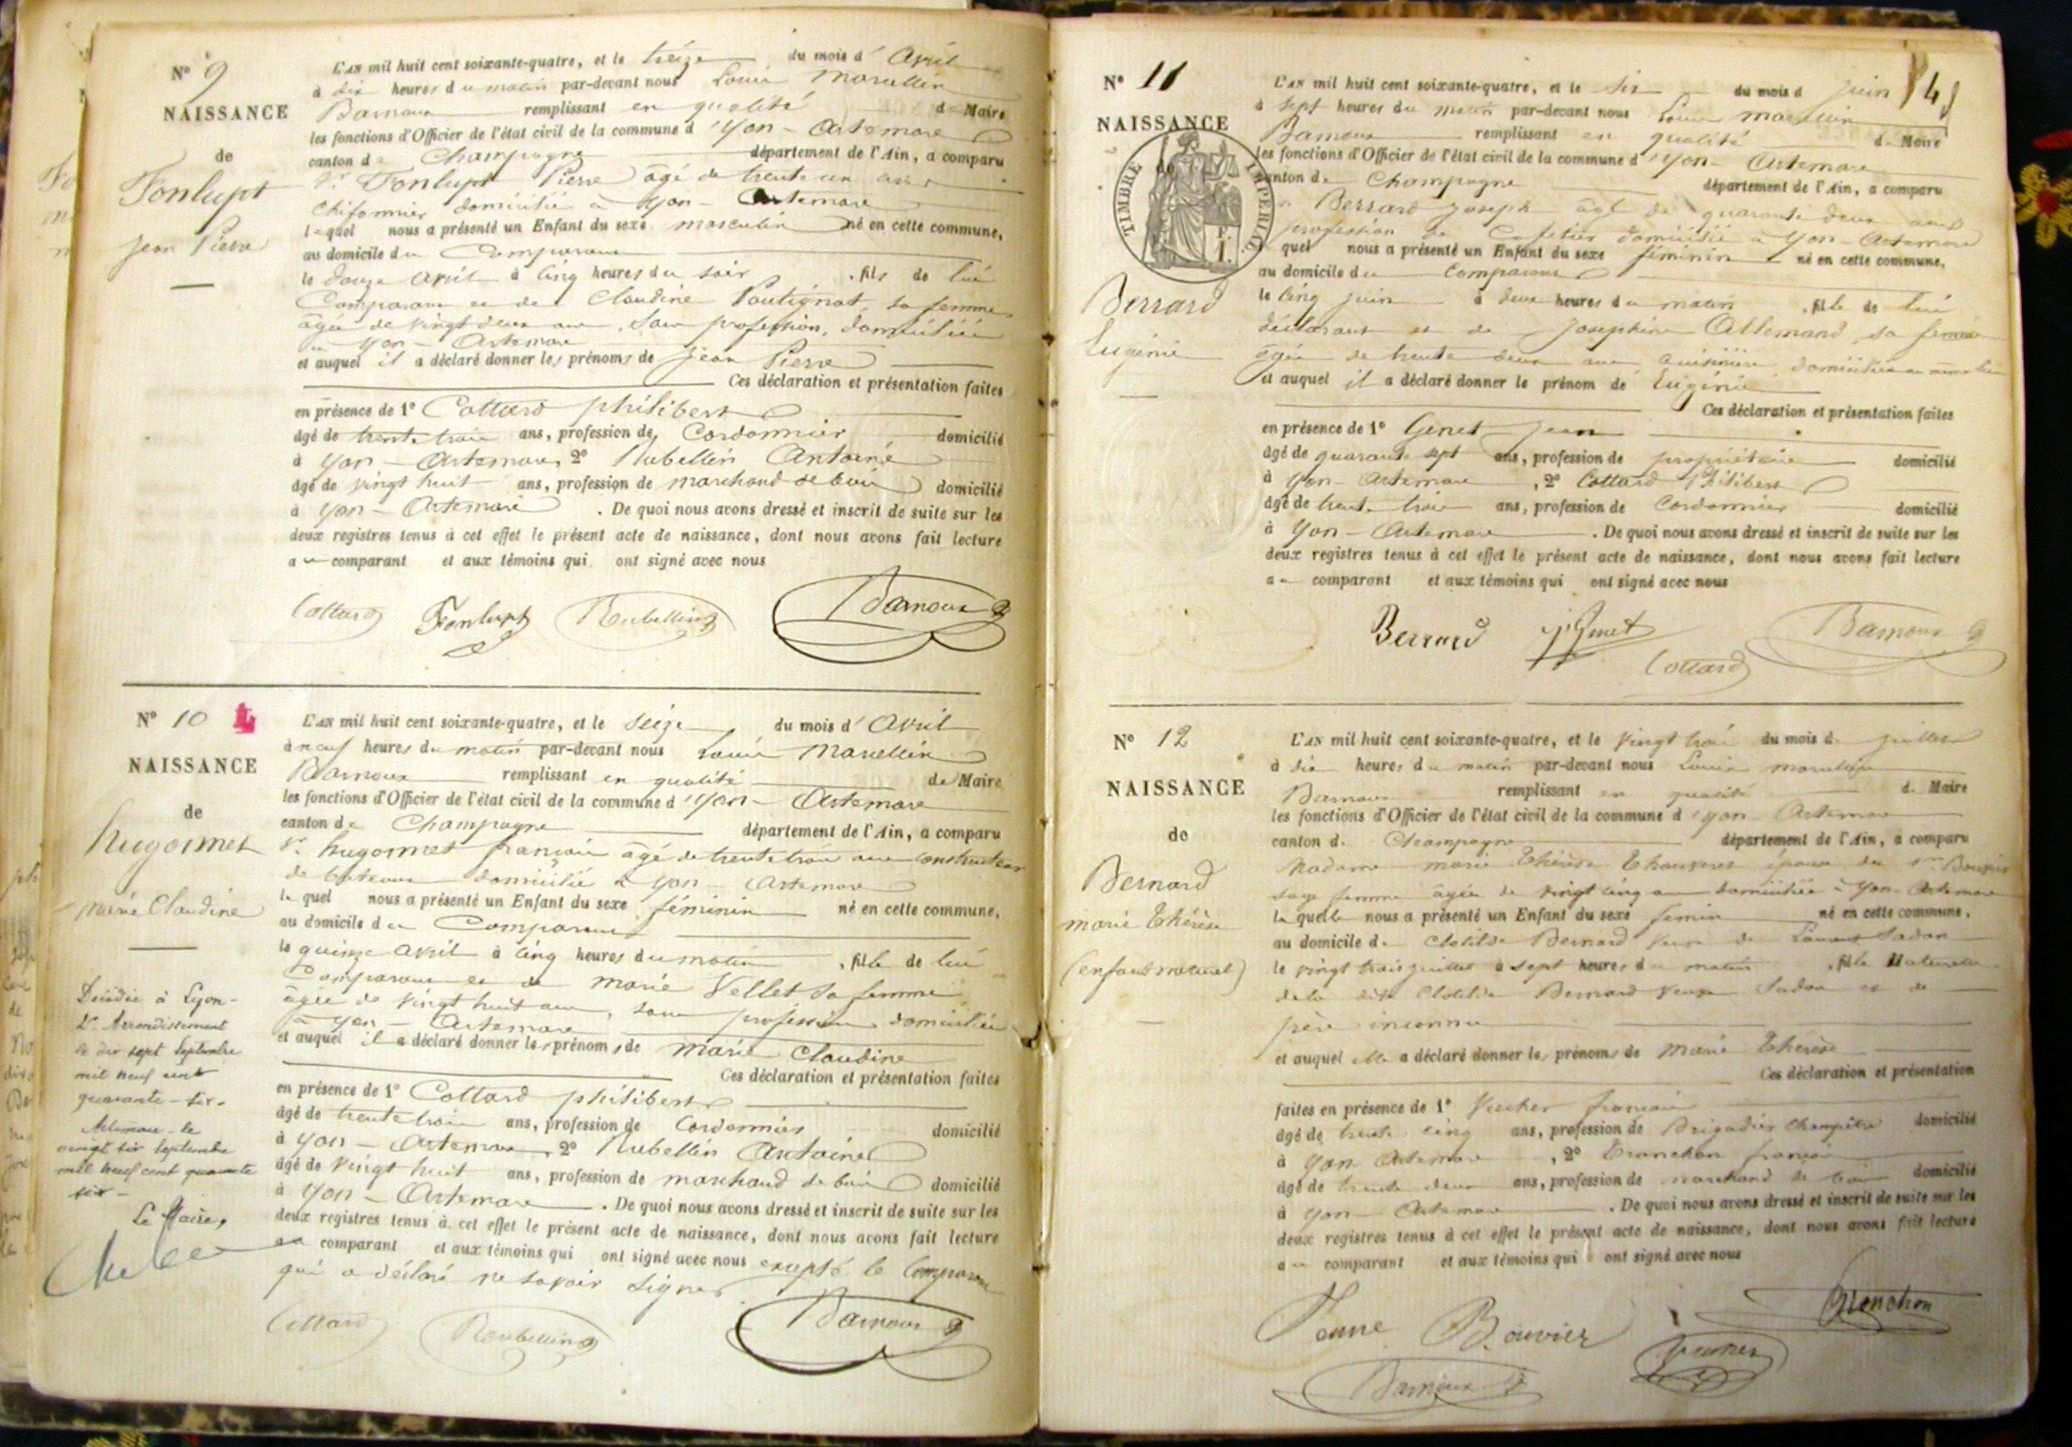 N° 9
NAISSANCE
de
Fonlupt
Jean Pierre
L'AN mil huit cent soixante-quatre, et le treize du mois d' Avril
à dix heures du matin par-devant nous Louis Marcellin
Barnoux remplissant en qualité de Maire
les fonctions d'Officier de l'état civil de la commune d' Yon - Artemare
canton de Champagne département de l'Ain, a comparu
Sr Fonlupt Pierre âgé de trente un ans
chifonnier domicilié à Yon - Artemare
lequel nous a présenté un Enfant du sexe masculin né en cette commune,
au domicile du Comparant
le douze Avril à cinq heures du soir . fils de lui
Comparant et de Claudine Poutignat sa femme
âgée de vingt deux ans, sans profession, domiciliée
à Yon - Artemare
et auquel il a déclaré donner les prénoms de Jean Pierre
Ces déclaration et présentation faites
en présence de 1° Cottard philibert
âgé de trente trois ans, profession de Cordonnier domicilié
à Yon - Artemare, 2° Rubellin Antoine
âgé de vingt huit ans, profession de marchand de bois domicilié
à Yon - Artemare . De quoi nous avons dressé et inscrit de suite sur les
deux registres tenus à cet effet le présent acte de naissance, dont nous avons fait lecture
au comparant et aux témoins qui ont signé avec nous
Cottard Fonlupt Reubellin Barnoux
N° 10
NAISSANCE
de
hugonnet
marie Claudine
Décédée à Lyon -
Arrondissement
le dix sept Septembre
mil neuf cent
quarante - six -
Artemare le
vingt six Septembre
mil neuf cent quarante
six -
Le Maire,
L'AN mil huit cent soixante-quatre, et le seize du mois d' Avril
à neuf heures du matin par-devant nous Louis Marcellin
Barnoux remplissant en qualité de Maire
les fonctions d'Officier de l'état civil de la commune d' Yon - Artemare
canton de Champagne département de l'Ain, a comparu
Sr hugonnet françois âgé de trente trois ans constructeur
de bateaux domicilié à Yon - Artemare
le quel nous a présenté un Enfant du sexe féminin né en cette commune,
au domicile du Comparant
le quinze avril à cinq heures du matin , fille de lui
Comparant et de marie Vellet sa femme
âgée de vingt huit ans, sans profession domiciliée
à Yon - Artemare
et auquel il a déclaré donner les prénoms de marie Claudine
Ces déclaration et présentation faites
en présence de 1° Cottard philibert
âgé de trente trois ans, profession de Cordonnier domicilié
à Yon - Artemare, 2° Rubellin Antoine
âgé de vingt huit ans, profession de marchand de bois domicilié
à Yon - Artemare . De quoi nous avons dressé et inscrit de suite sur les
deux registres tenus à cet effet le présent acte de naissance, dont nous avons fait lecture
au comparant et aux témoins qui ont signé avec nous excepté le Comparant
qui a déclaré ne savoir signer
Cottard Reubellin Barnoux
N° 11
NAISSANCE
TIMBRE IMPÉRIAL
Berrard
Eugénie
L'AN mil huit cent soixante-quatre, et le six du mois d juin
à sept heures du matin par-devant nous Louis marcellin
Barnoux remplissant en qualité de Maire
les fonctions d'Officier de l'état civil de la commune d' Yon - Artemare
canton de Champagne département de l'Ain, a comparu
Berrard Joseph âgé de quarante deux ans
profession de Cafetier domicilié à Yon - Artemare
quel nous a présenté un Enfant du sexe féminin né en cette commune,
au domicile du Comparant
le cinq juin à deux heures du matin , fille de lui
déclarant et de Josephine Allemand sa femme
âgée de trente deux ans cuisinière domiciliée au même lieu
et auquel il a déclaré donner le prénom de Eugénie
Ces déclaration et présentation faites
en présence de 1° Genet Jean
âgé de quarante sept ans, profession de propriétaire domicilié
à Yon - Artemare , 2° Cottard Philibert
âgé de trente trois ans, profession de Cordonnier domicilié
à Yon - Artemare . De quoi nous avons dressé et inscrit de suite sur les
deux registres tenus à cet effet le présent acte de naissance, dont nous avons fait lecture
au comparant et aux témoins qui ont signé avec nous
Berrard Genet Barnoux
Cottard
N° 12
NAISSANCE
de
Bernard
marie Thérèse
(enfant naturel)
L'AN mil huit cent soixante-quatre, et le vingt trois du mois de juillet
à dix heures du matin par-devant nous Louis marcellin
Barnoux remplissant en qualité de Maire
les fonctions d'Officier de l'état civil de la commune d' Yon - Artemare
canton de Champagne département de l'Ain, a comparu
Madame marie Thérèse épouse du sr Bouvier
sage femme âgée de vingt cinq ans domiciliée à Yon - Artemare
la quelle nous a présenté un Enfant du sexe féminin né en cette commune,
au domicile de Clotilde Bernard veuve de
le vingt trois juillet à sept heures du matin , fille Naturelle
de la dite Clotilde Bernard veuve et de
père inconnu
et auquel elle a déclaré donner les prénoms de Marie Thérèse
Ces déclaration et présentation
faites en présence de 1° françois
âgé de trente cinq ans, profession de Brigadier Champêtre domicilié
à Yon Artemare , 2° Tronchon françois
âgé de trente deux ans, profession de marchand de bois domicilié
à Yon - Artemare . De quoi nous avons dressé et inscrit de suite sur les
deux registres tenus à cet effet le présent acte de naissance, dont nous avons fait lecture
au comparant et aux témoins qui ont signé avec nous
Bouvier Tronchon
Barnoux